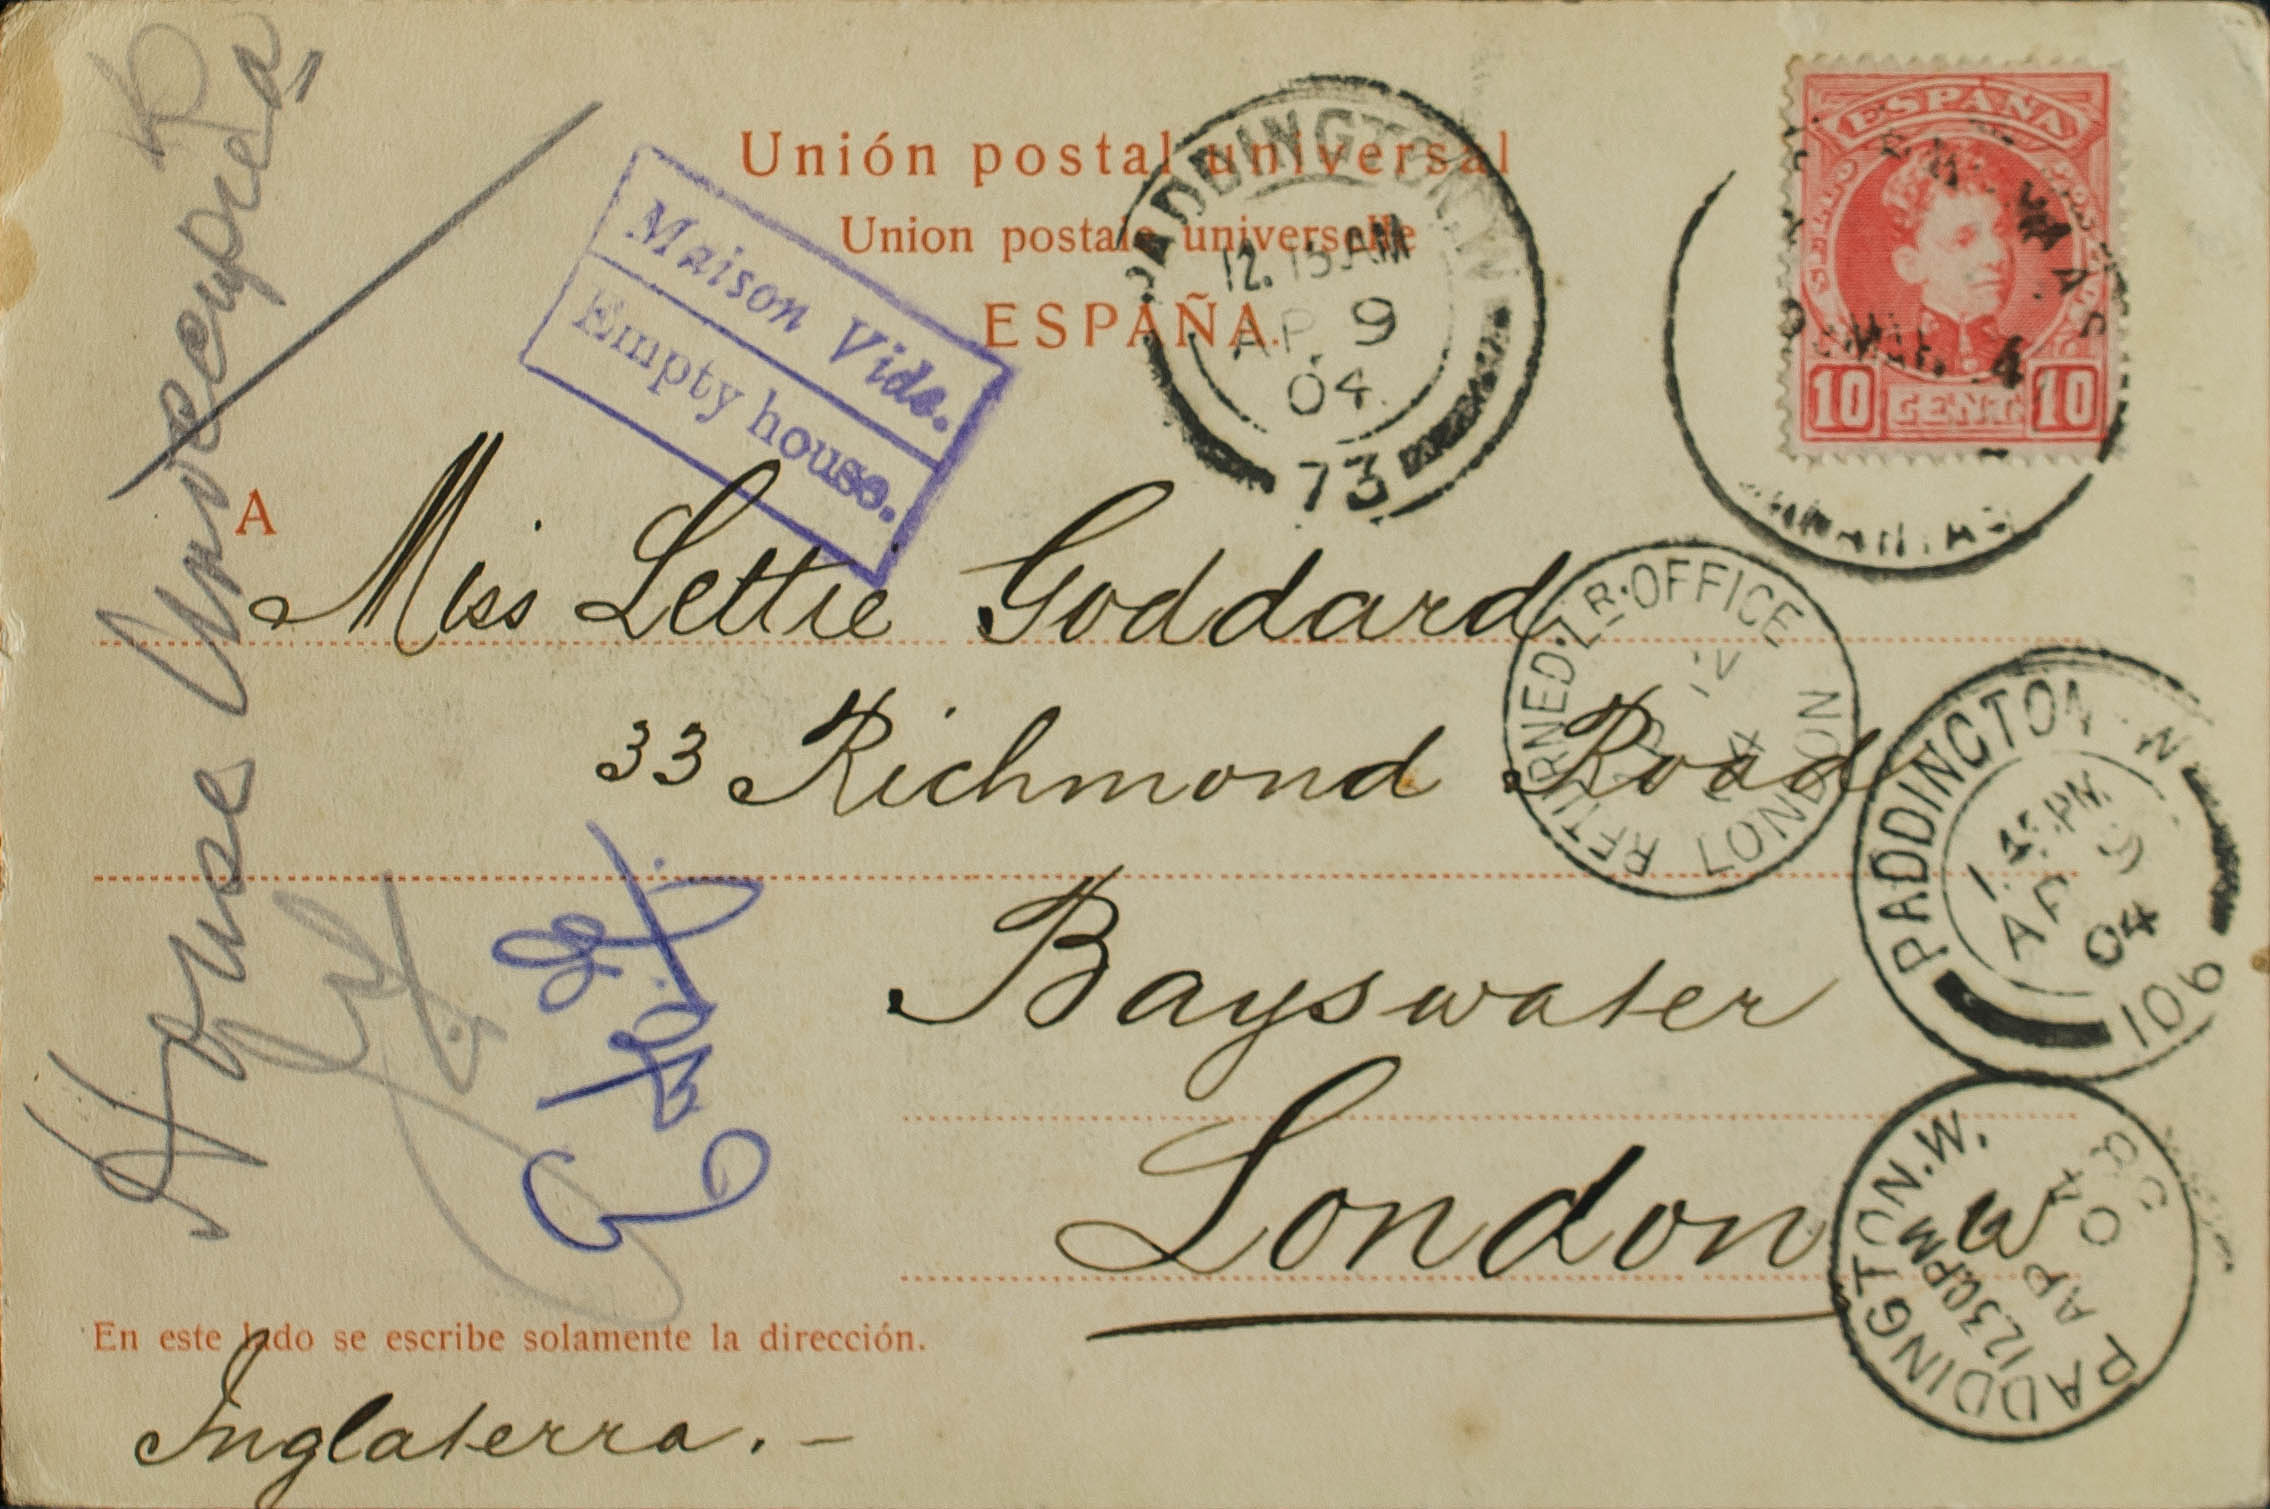 Unión postal universal
Union postale universelle
ESPAÑA.
Maison Vide.
Empty house.
PADDINGTON.W
12.15 AM
AP 9
04
73
ESPAÑA
10 CENT. 10
A
Miss Lettie Goddard
33 Richmond Road
Bayswater
London
W
En este lado se escribe solamente la dirección.
Inglaterra. –
House Unoccupied
RETURNED. LR. OFFICE
LONDON
PADDINGTON. W
1.45 PM
AP 9
04
106
PADDINGTON.W.
12.30 PM
AP 04
PADDINGTON